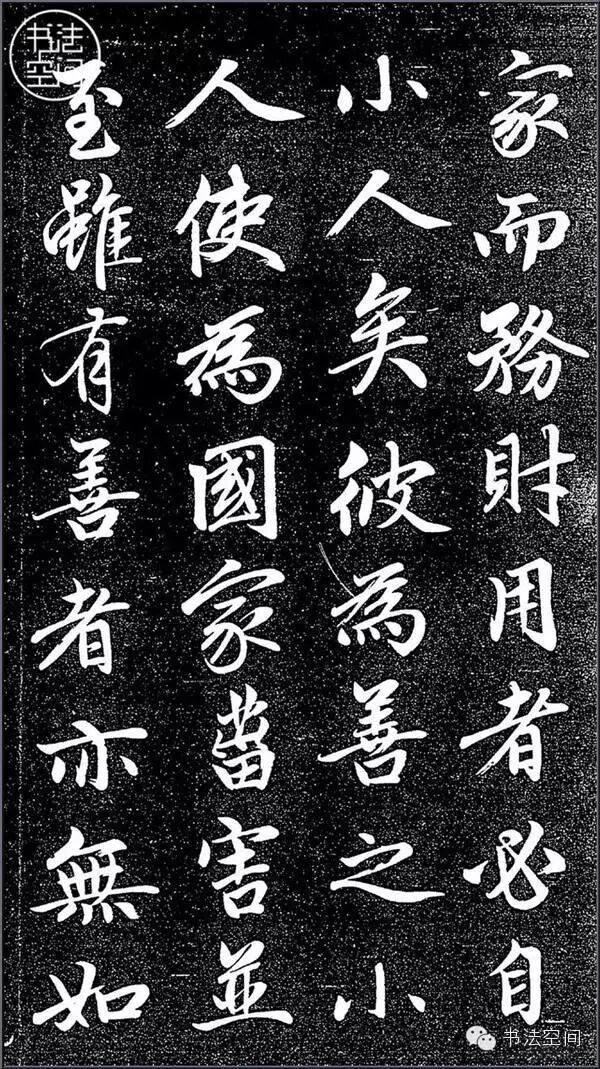 家而務財用者必自
小人矣彼為善之小
人使為國家菑害並
至雖有善者亦無如
书法空间
书法空间